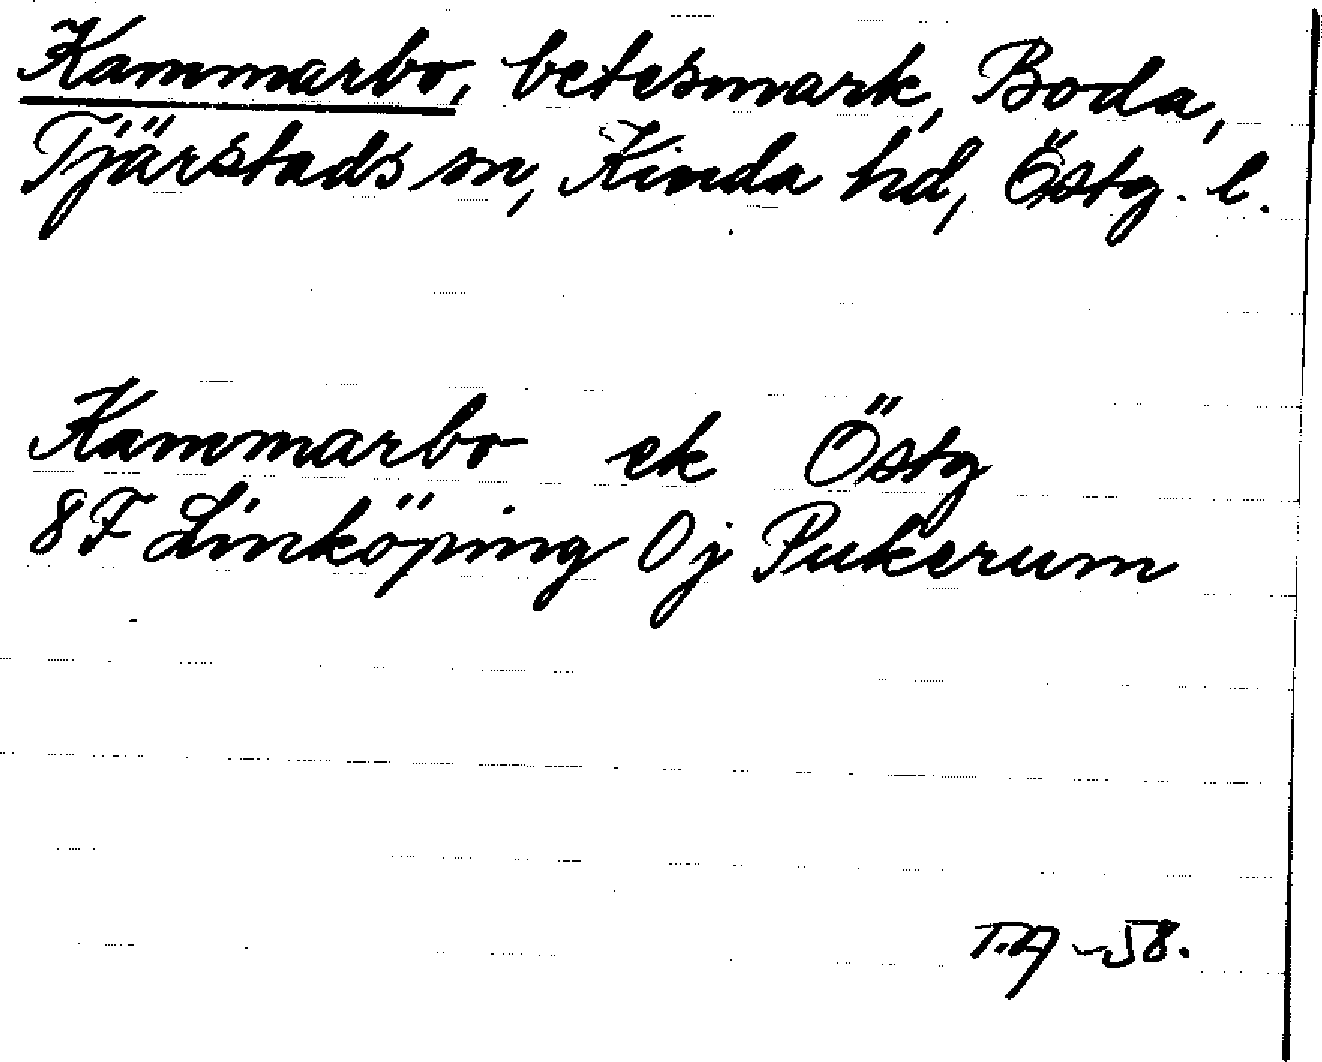 Kammarbo, betesmark, Boda,
Tjärstads sn, Kinda hd, Östg. l.
Kammarbo ek Östg
8F Linköping 0j Pukerum
T.A -58.